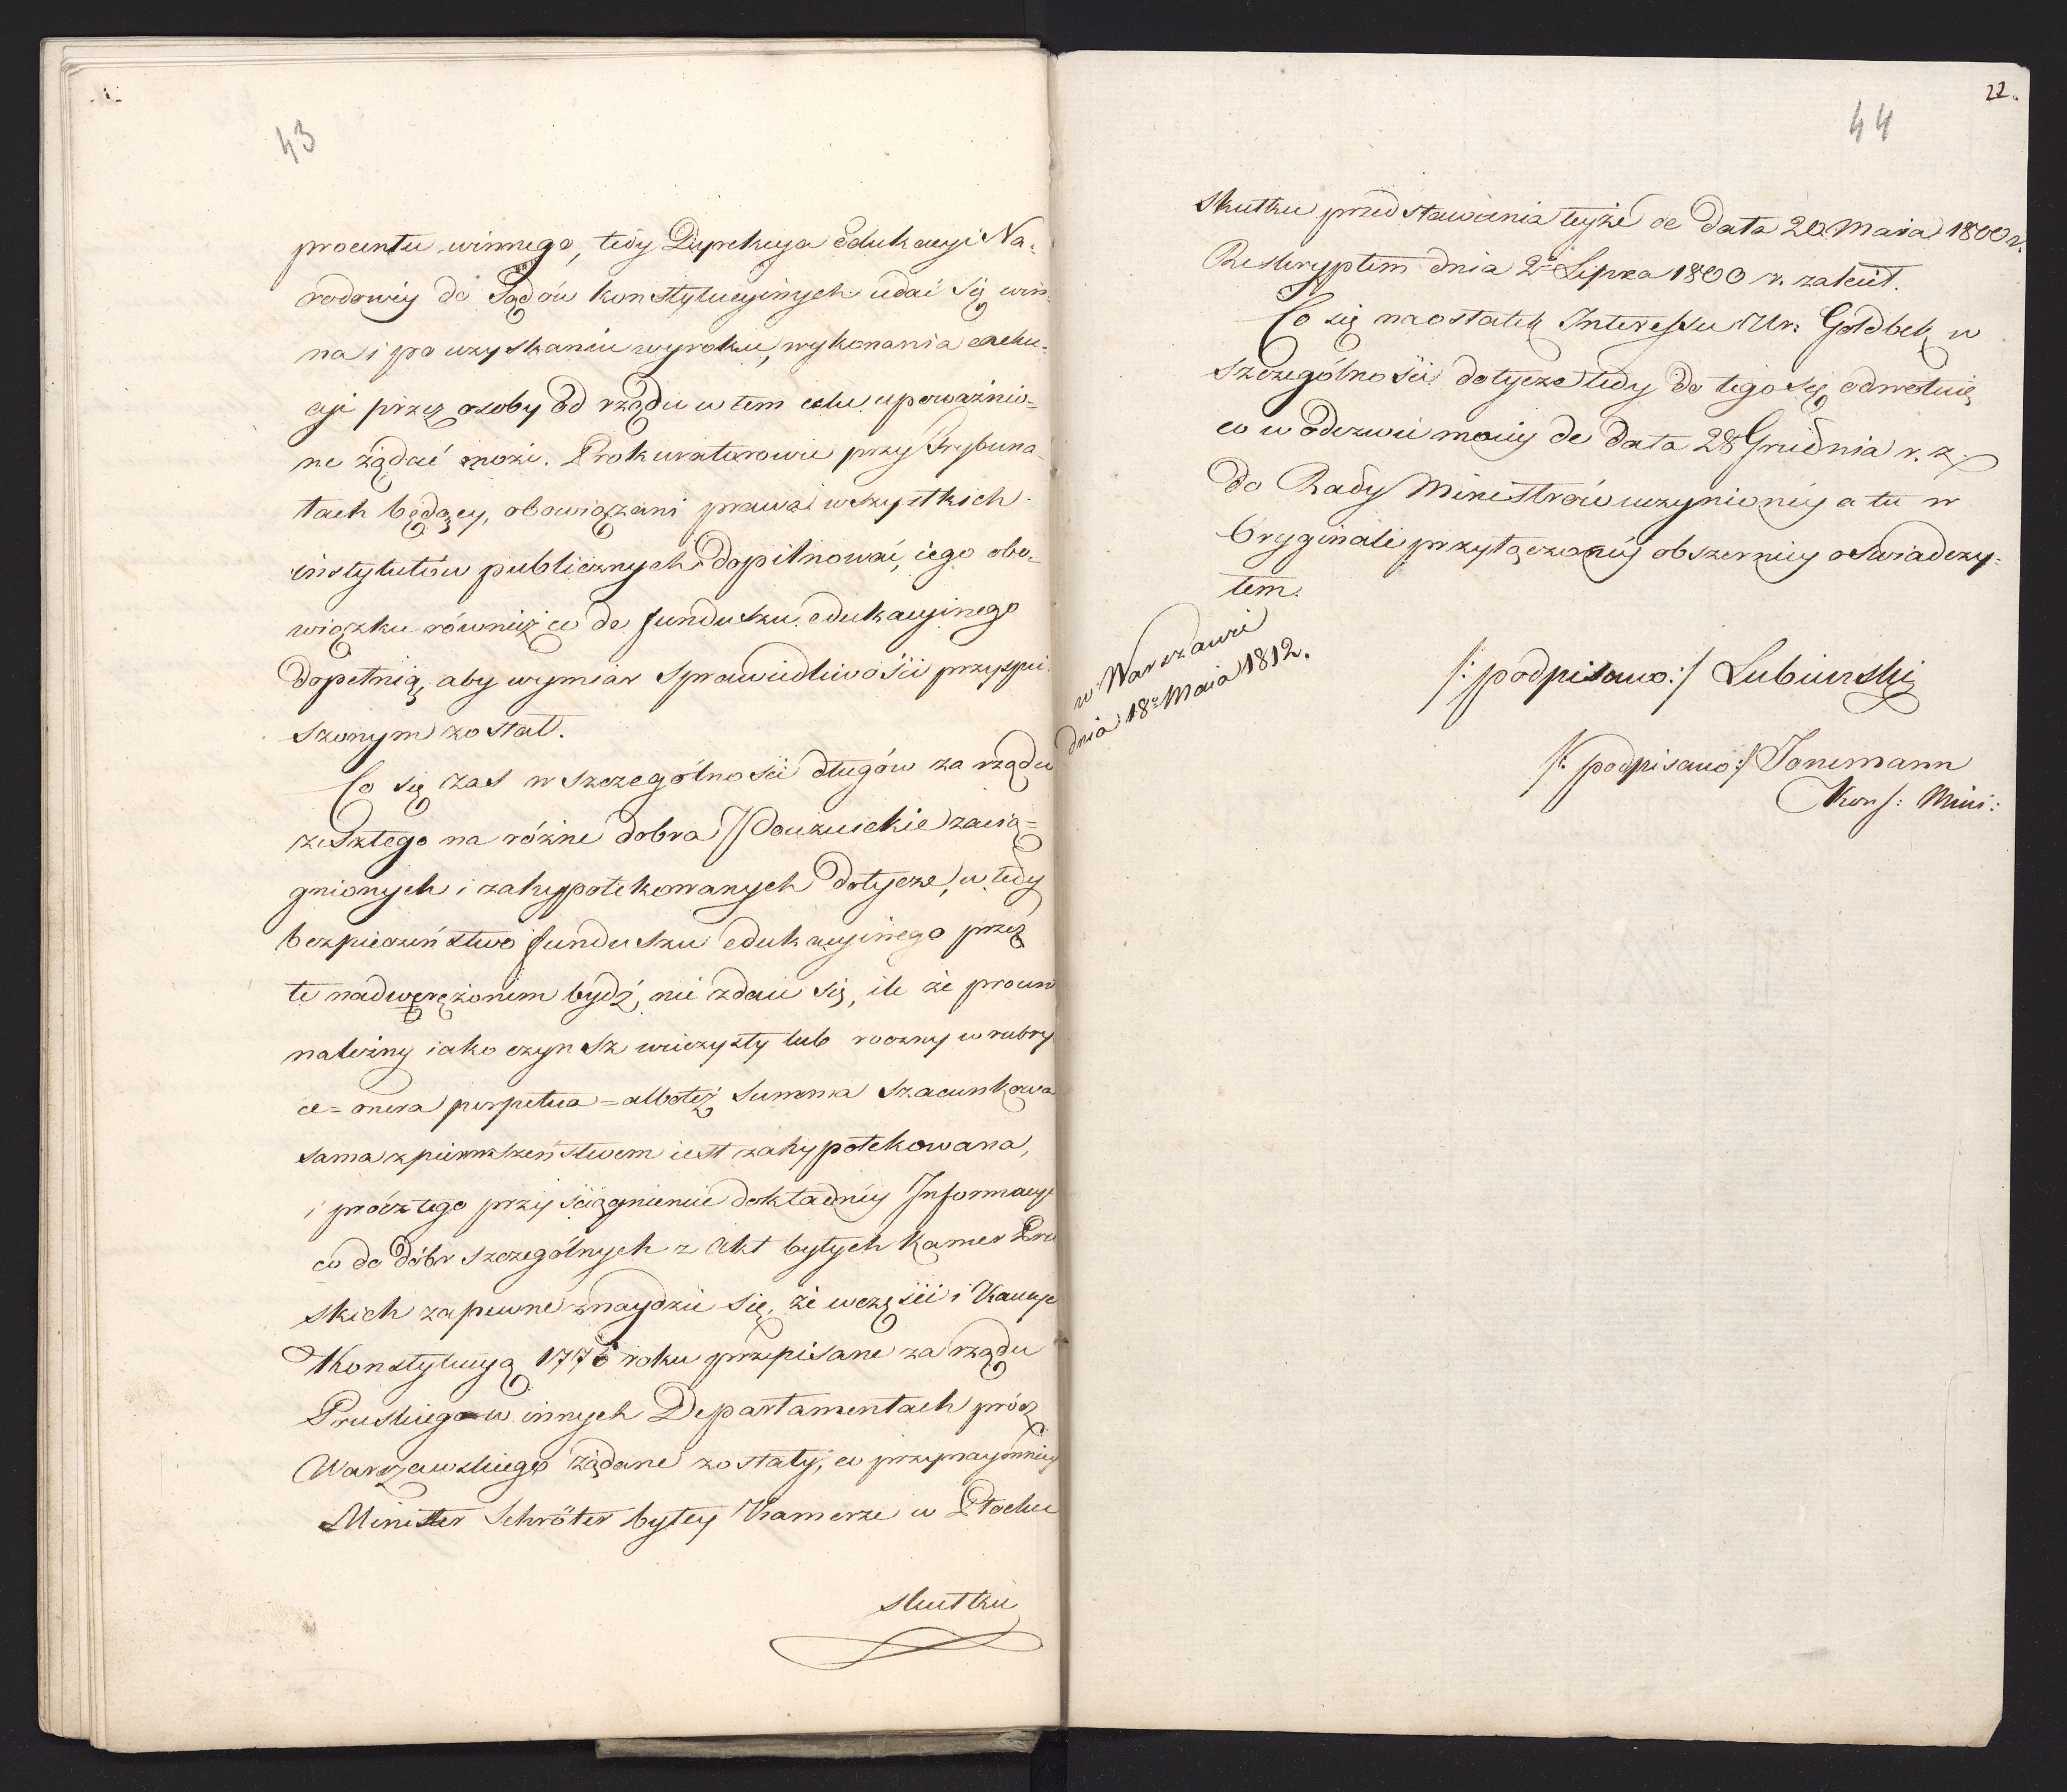 43
procentu winnego, tedy Dyrekcya Edukacyi Na-
rodowéy do Sądów konstytucyinych udać się win-
na i po uzyskaniu wyroku, wykonania exeku-
cyi przez osoby od rządu w tem celu upoważnio-
ne żądać może. Prokuratorowie przy Trybuna-
łach będący, obowiązani prawa wszystkich
instytutów publicznych dopilnować, iego obo-
wiązku równiéż co do funduszu edukacyinego
dopełnią, aby wymiar sprawiedliwości przyspie-
szonym został.
Co się zaś w szczególności długów za rządu
zeszłego na różne dobra Pojezuickie zacią-
gnionych i zahypotekowanych dotycze, w tedy
bezpieczeństwo funduszu edukacyinego przez
te nadwerężonem bydź, nie zdaie się, ile że procent
należny iako czynsz wieczysty lub roczny w rubry
ce = onera perpetua = albo téż summa szacunkowa
sama z pierwszeństwem iest zahypotekowana,
i prócz tego przy ściągnieniu dokładnéy Informacyi
co do dóbr szczególnych z Akt byłych Kamer Pru
skich zapewne znaydzie się, że w części i Kaucye
Konstytucyą 1776 roku przepisane za rządu
Pruskiego w innych Departamentach prócz
Warszawskiego żądane zostały, co przynaymniéy
Minister Schröter byłey Kamerze w Płocku
skutku
22.
44
skutku przedstawienia teyże de data 20 Maia 1800 r.
Reskryptem dnia 2º Lipca 1800 r. zalecił.
Co się naostatek Interessu Ur: Goldbek w
szczególności dotycze tedy do tego się odwołuię
co w odezwie moiéy de data 28 Grudnia r. z.
do Rady Ministrów uczynionéy a tu w
Oryginale przyłączonéy obszerniéy oświadczy-
łem.
w Warszawie
dnia 18º Maia 1812.
/: podpisano :/ Łubieński
/: podpisano :/ Jonemann
Kons: Mini: